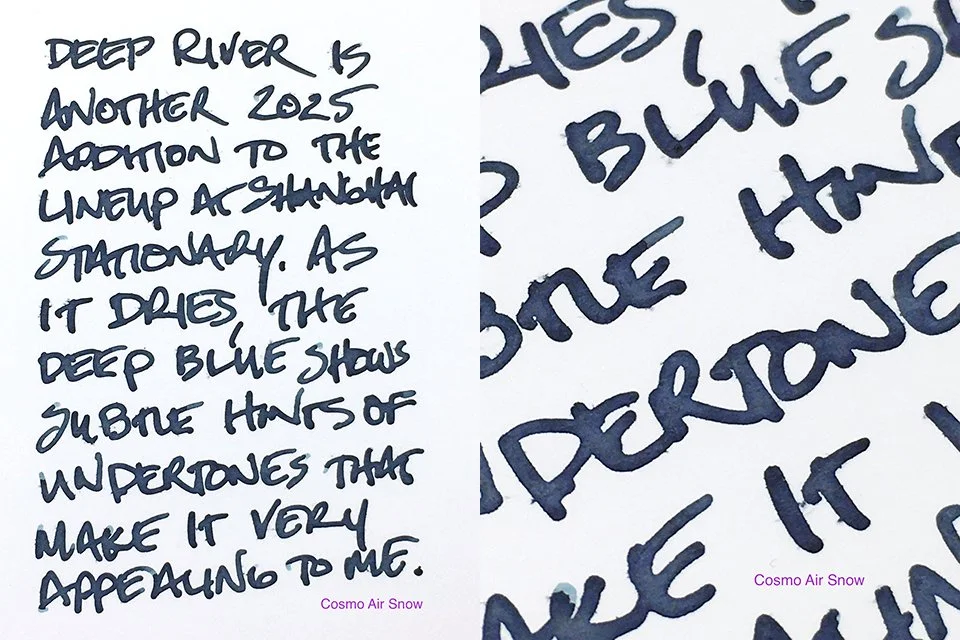 DEEP RIVER IS
ANOTHER 2025
ADDITION TO THE
LINEUP AT SHANGHAI
STATIONARY. AS
IT DRIES, THE
DEEP BLUE SHOWS
SUBTLE HINTS OF
UNDERTONES THAT
MAKE IT VERY
APPEALING TO ME.
Cosmo Air Snow
RIES,
P BLUE SH
BTLE HIN
NDERTONE
AKE IT V
ALIN
Cosmo Air Snow